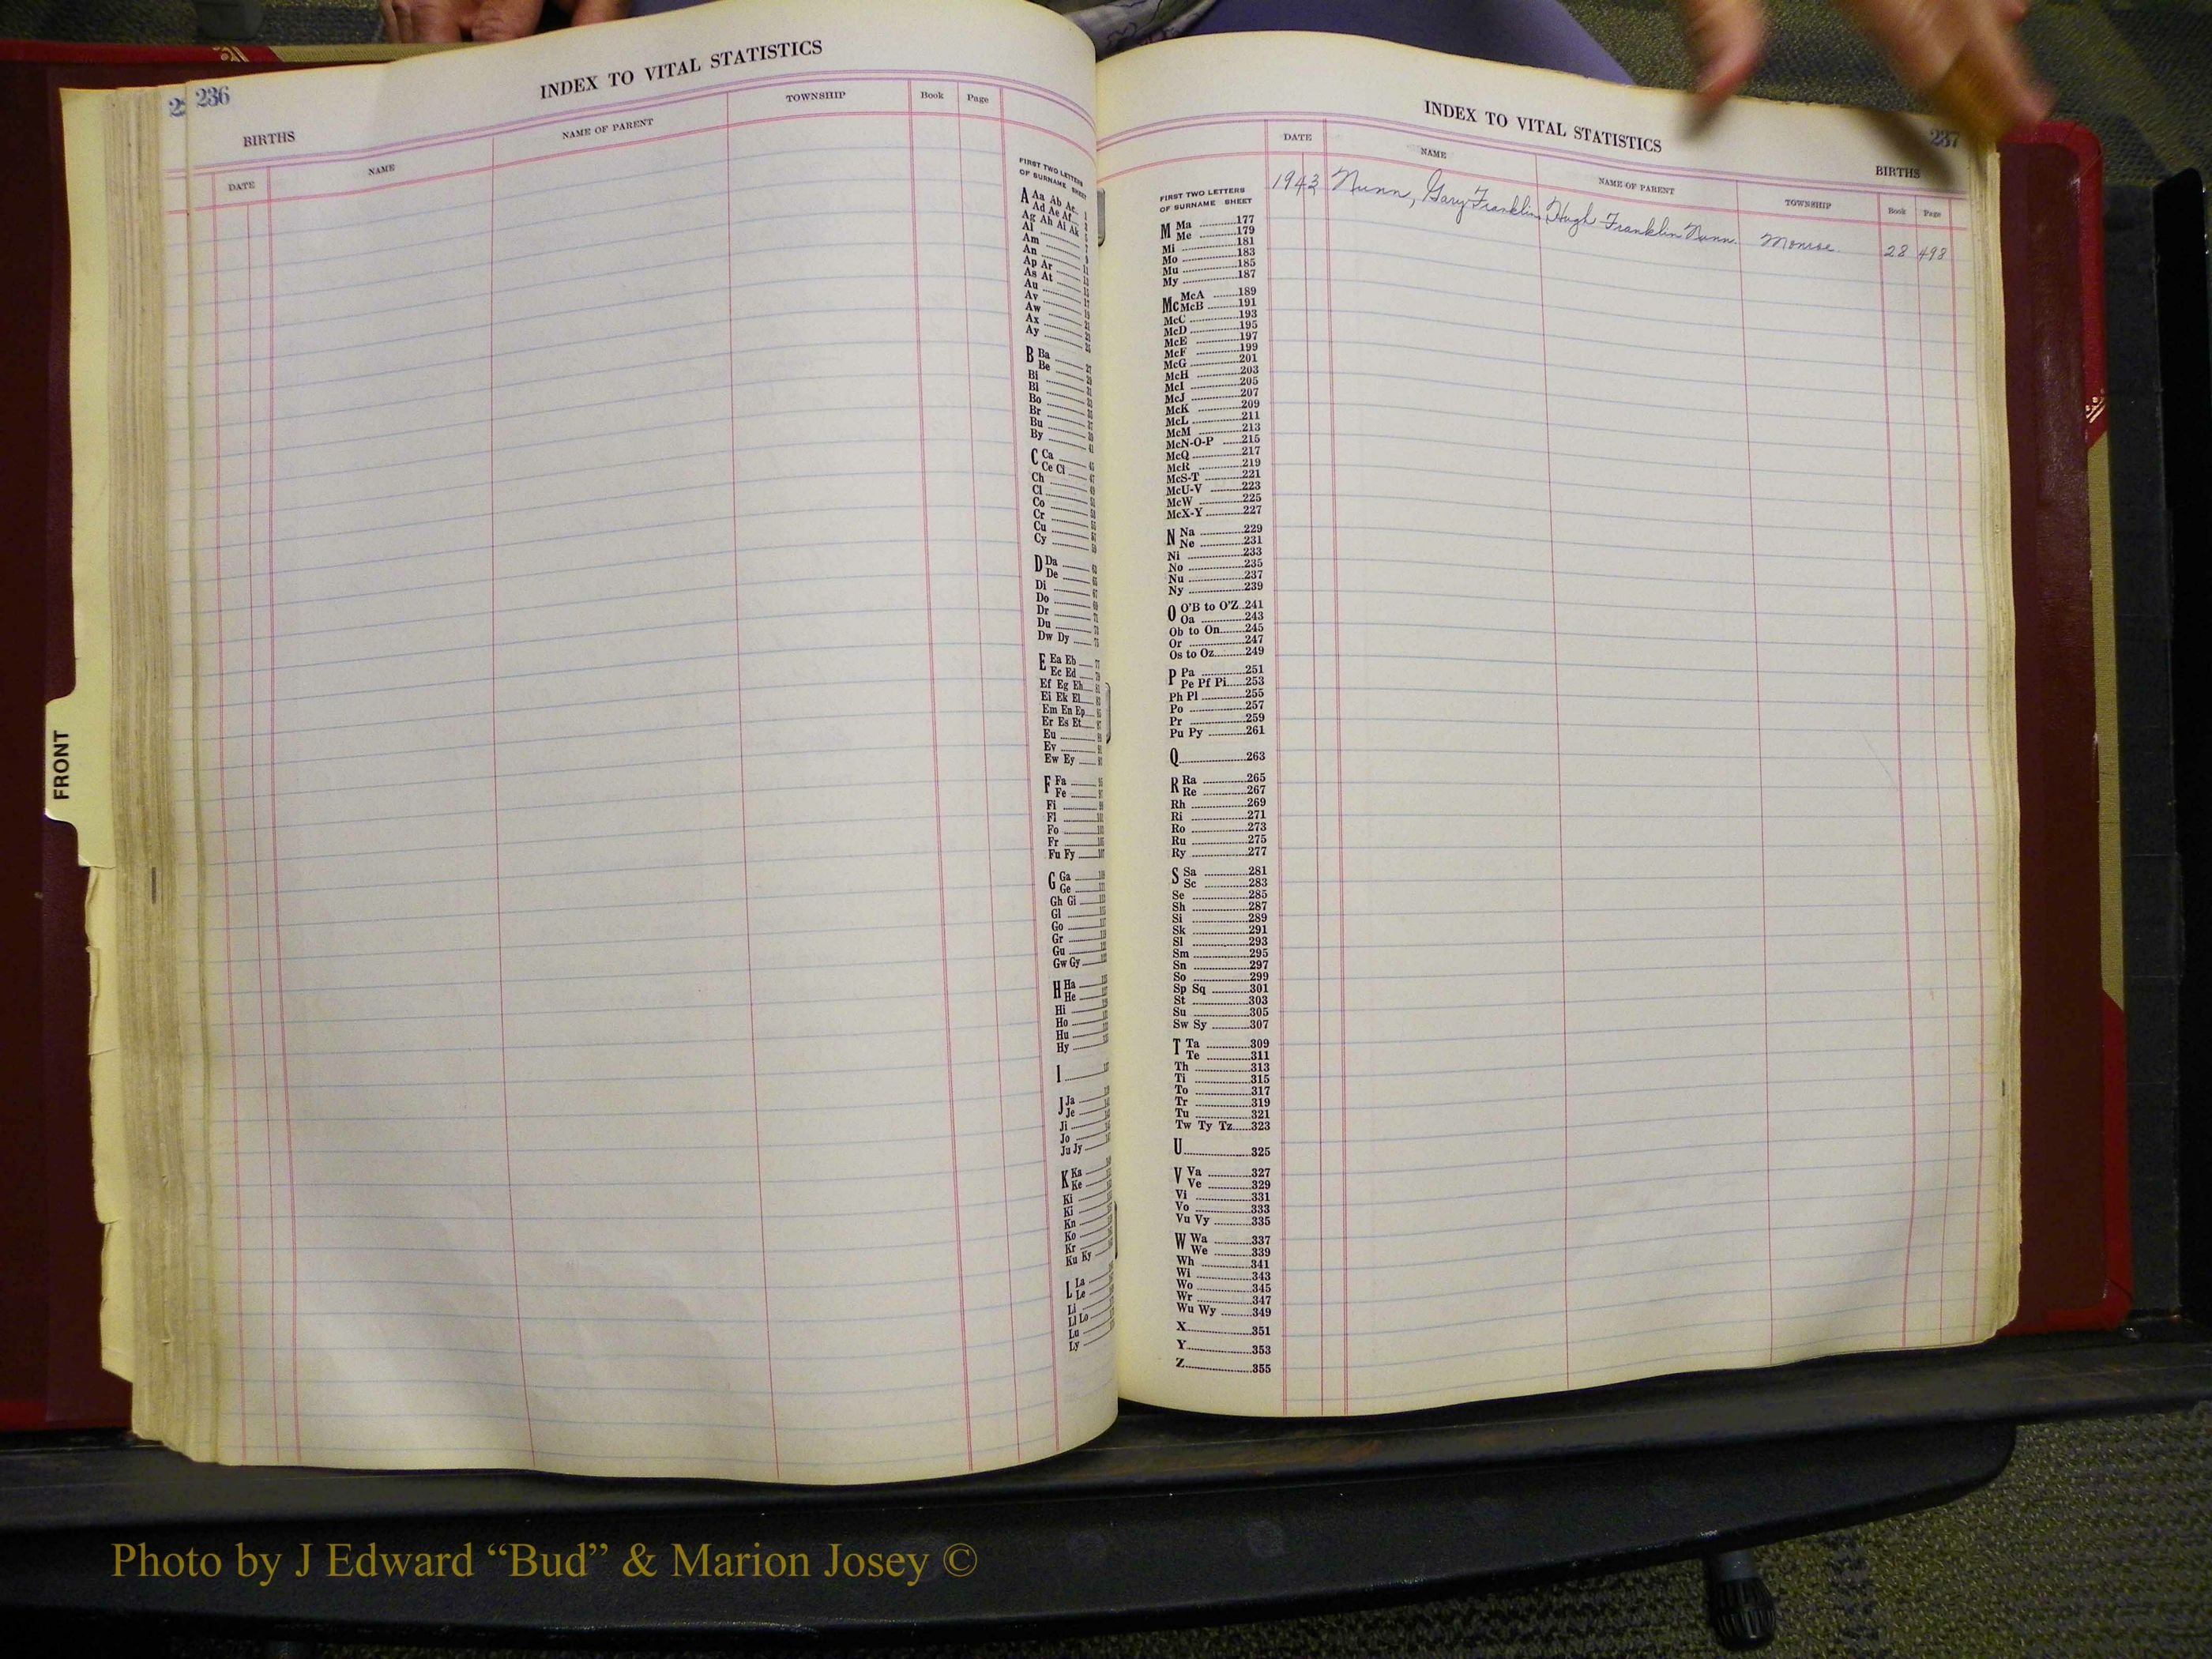 236
INDEX TO VITAL STATISTICS
BIRTHS
DATE NAME NAME OF PARENT TOWNSHIP Book Page
FIRST TWO LETTERS
OF SURNAME SHEET
A Aa Ab Ac
Ad Ae Af
Ag Ah Ai Ak
Al
Am
An
Ap Ar
As At
Au
Av
Aw
Ax
Ay
B Ba
Be
Bi
Bl
Bo
Br
Bu
By
C Ca
Ce Ci
Ch
Cl
Co
Cr
Cu
Cy
D Da
De
Di
Do
Dr
Du
Dw Dy
E Ea Eb
Ec Ed
Ef Eg Eh
Ei Ek El
Em En Ep
Er Es Et
Eu
Ev
Ew Ey
F Fa
Fe
Fi
Fl
Fo
Fr
Fu Fy
G Ga
Ge
Gh Gi
Gl
Go
Gr
Gu
Gw Gy
H Ha
He
Hi
Ho
Hu
Hy
I
J Ja
Je
Ji
Jo
Ju Jy
K Ka
Ke
Ki
Kl
Kn
Ko
Kr
Ku Ky
L La
Le
Li
Ll Lo
Lu
Ly
FRONT
237
INDEX TO VITAL STATISTICS
BIRTHS
DATE NAME NAME OF PARENT TOWNSHIP Book Page
1943 Nunn, Gary Franklin Hugh Franklin Nunn. Monroe. 28 498
FIRST TWO LETTERS
OF SURNAME SHEET
M Ma 177
Me 179
Mi 181
Mo 183
Mu 185
My 187
Mc McA 189
McB 191
McC 193
McD 195
McE 197
McF 199
McG 201
McH 203
McI 205
McJ 207
McK 209
McL 211
McM 213
McN-O-P 215
McQ 217
McR 219
McS-T 221
McU-V 223
McW 225
McX-Y 227
N Na 229
Ne 231
Ni 233
No 235
Nu 237
Ny 239
O O'B to O'Z 241
Oa 243
Ob to On 245
Or 247
Os to Oz 249
P Pa 251
Pe Pf Pi 253
Ph Pl 255
Po 257
Pr 259
Pu Py 261
Q 263
R Ra 265
Re 267
Rh 269
Ri 271
Ro 273
Ru 275
Ry 277
S Sa 281
Sc 283
Se 285
Sh 287
Si 289
Sk 291
Sl 293
Sm 295
Sn 297
So 299
Sp Sq 301
St 303
Su 305
Sw Sy 307
T Ta 309
Te 311
Th 313
Ti 315
To 317
Tr 319
Tu 321
Tw Ty Tz 323
U 325
V Va 327
Ve 329
Vi 331
Vo 333
Vu Vy 335
W Wa 337
We 339
Wh 341
Wi 343
Wo 345
Wr 347
Wu Wy 349
X 351
Y 353
Z 355
Photo by J Edward “Bud” & Marion Josey ©